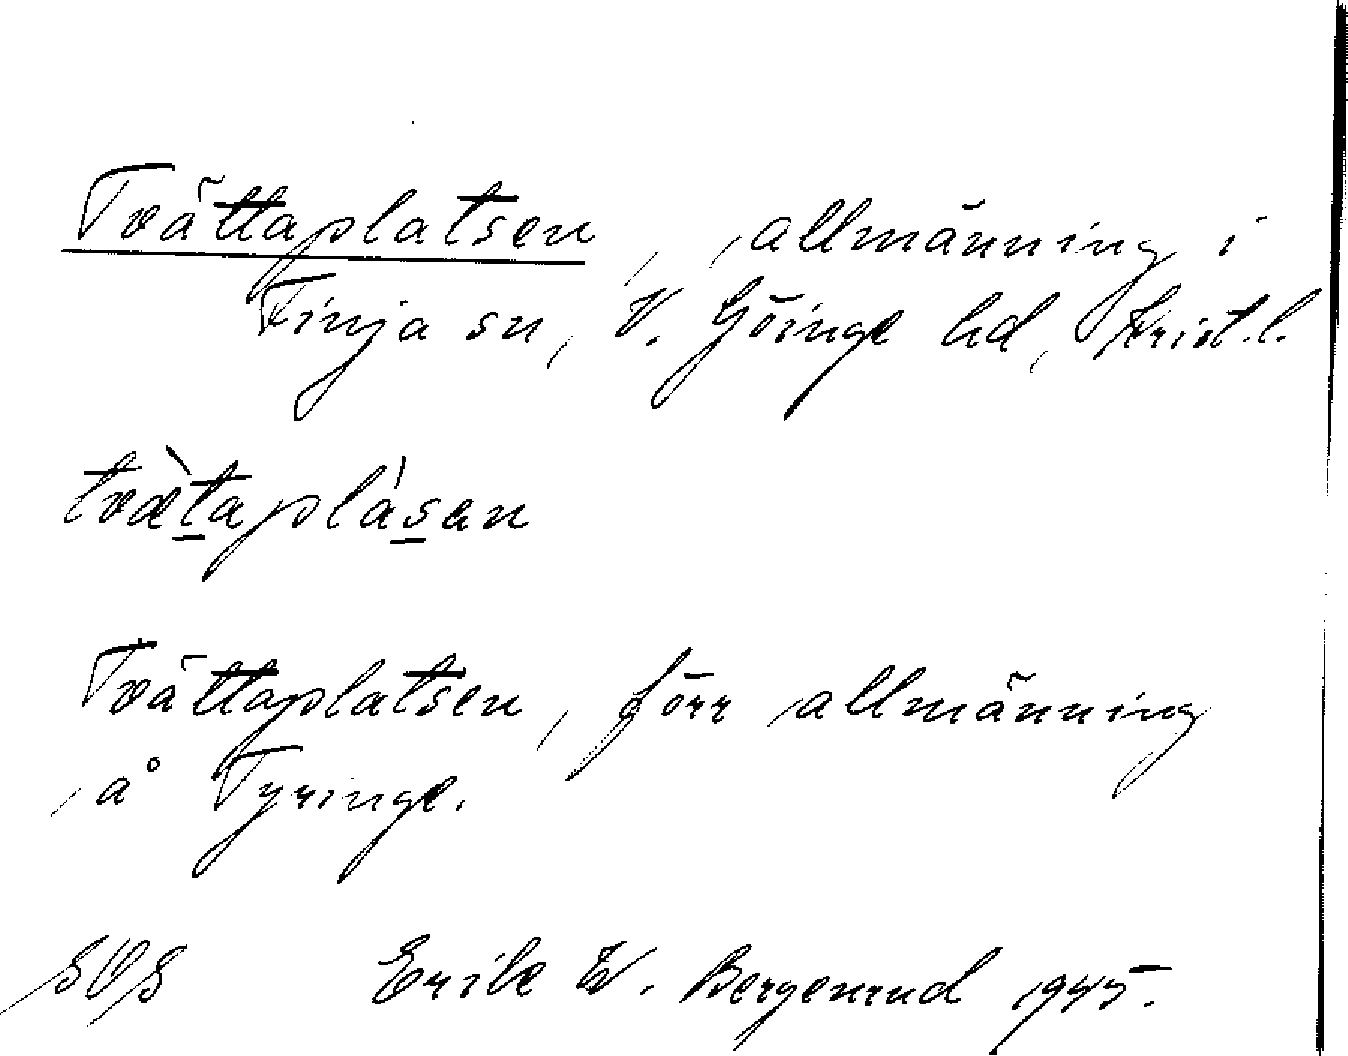 Tvättaplatsen, allmänning i
Finja sn, V. Göinge hd, Krist.l.
tvæ̀taplásen
Tvättaplatsen, förr allmänning
å Tyringe.
SOS Erik W. Bergenrud 1945.